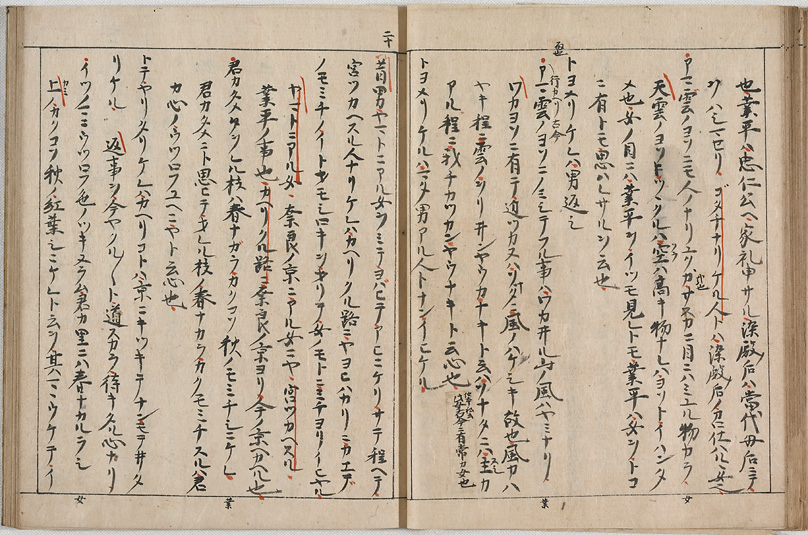 也業平ハ忠仁公ヘ家礼申サル染殿后ハ當代母后ニテ
ヲハシマセリ ゴタチナリケル人トハ染殿后ノ方ニ仕ハルヽ女也
アマ雲ノヨソニモ人ノナリユクカサスカニ目ニハミユル物カラ
天雲ノヨソトツヽクルハ空ハ高キ物ナレハヨソトイハンタ
メ也女ノ目ニハ業平ヲイツモ見レトモ業平ハ女ヲトコ
ニ有トモ思ハレサルヲ云也
トヨメリケレハ男返シ
行カヘリ古今
アマ雲ノヨソニノミシテフル事ハワカヰル山ノ風ハヤミナリ
ワカヨソニ有テ近ツカヌハソナタニ風ノハケシキ故也風カハ
ヤキ程ニ雲ノシリ井ンヤウカナキト云ハソナタニ主カ
アル程ニ我チカツカンヤウナキト云心也
トヨメリケルハマタ男アル人トナンイヒケル
女
葉
二十
昔男ヤマトニアル女ヲミテヨハヒテアヒニケリサテ程ヘテ
宮ツカヘスル人ナリケレハカヘリクル路ニヤヨヒハカリニカエデ
ノモミチノイトオモシロキヲオリテ女ノモトニミチヨリイヒヤル
ヤマトニアル女 奈良ノ京ニアル女ニヤ 宮ツカヘスル
業平ノ事也 カヘリクル路ニ奈良ノ京ヨリ今ノ京ヘカヘル也
君カタメタヲレル枝ハ春ナカラカクコソ秋ノモミチシニケレ
君カタメニト思ヒテオレル枝ノ春ナカラカクモミチスルハ君
カ心ノウツロフユヘニヤト云心也
トテヤリタリケレハカヘリコトハ京ニキツキテナンモテキタ
リケル 返事ヲ今ヤクル〱ト道スカラ待キタル心ナリ
イツノマニウツロフ色ノツキヌラン君カ里ニハ春ナカルラシ
上ノカクコソ秋ノ紅葉シニケレト云ヲ其ハマニウケテイ
葉
女